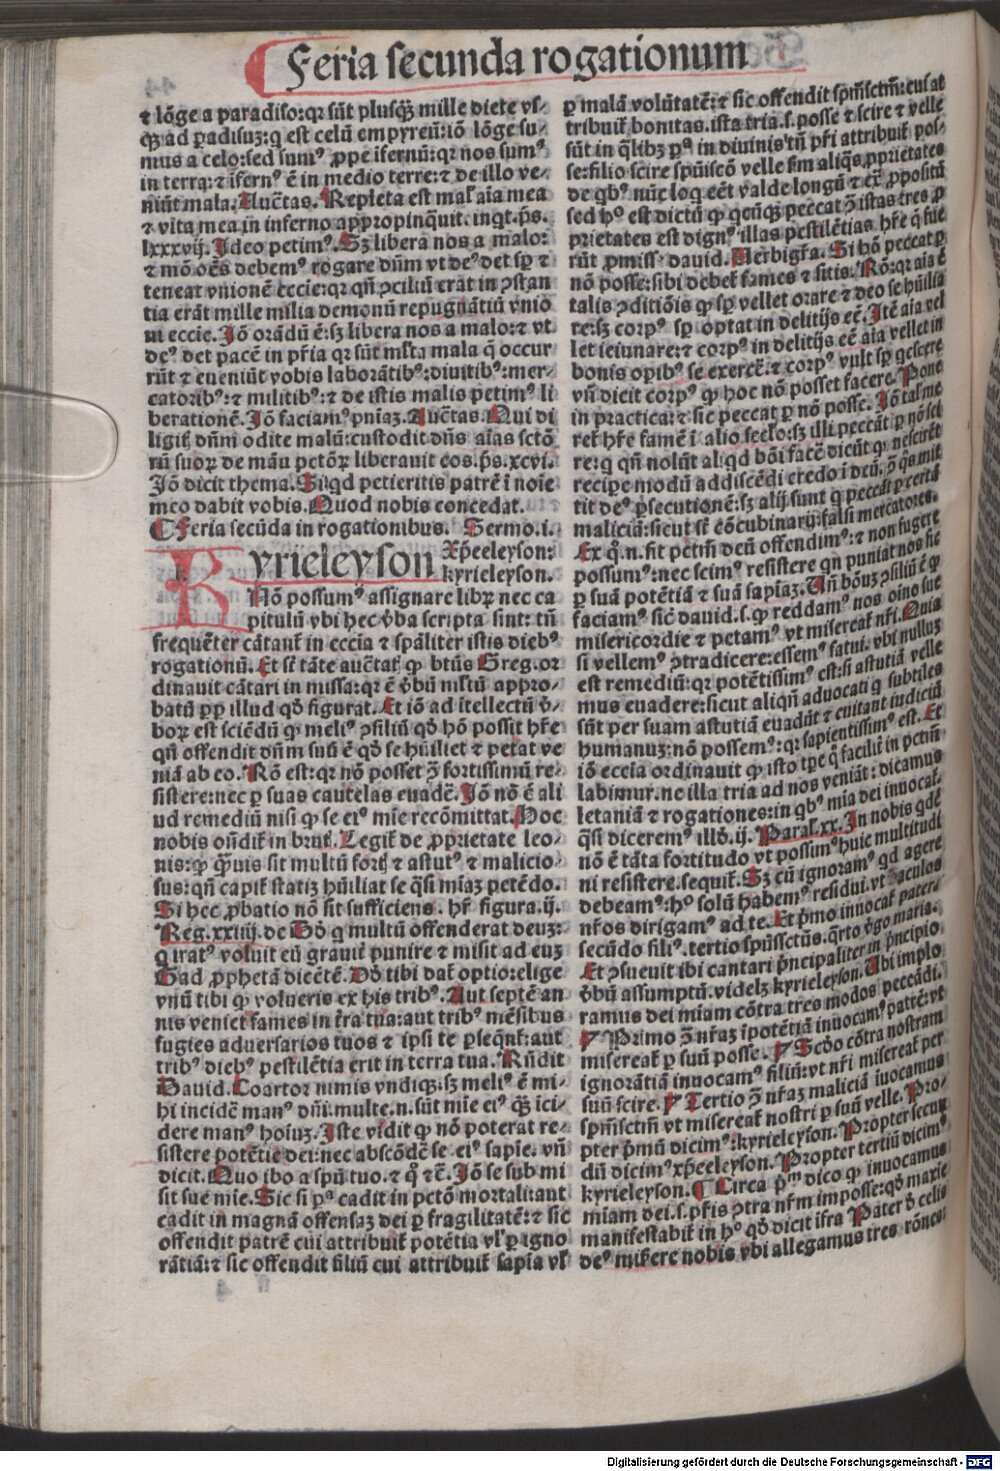 Feria secunda rogationum
⁊ lōge a paradiso:qꝛ sūt plusqꝫ mille diete vs⸗
qꝫ ad ꝑadisuꝫ:q est celū empyreū:iō lōge su⸗
mus a celo:sed sumꝰ ꝓpe ifernū:qꝛ nos sumꝰ
in terra:⁊ īfernꝰ ē in medio terre:⁊ de illo ve⸗
niūt mala. Auc̄tas. Repleta est mal̕ aīa mea
⁊ vita mea in inferno appropinq̄uit. inqt.p̄s.
lxxxvij. Ideo petimꝰ. Sꝫ libera nos a malo:
⁊ mō oēs debemꝰ rogare dn̄m vt deꝰ det sꝑ ⁊
teneat vnionē eccīe:qꝛ qn̄ ꝯciliū erāt in ꝯstan
tia erāt mille milia demonū repugnātiū vnio
ni eccīe. Iō orādū ē:sꝫ libera nos a malo:⁊ vt
deꝰ det pacē in pr̄ia qꝛ sūt ml̄ta mala q̄ occur
rūt ⁊ eueniūt vobis laborātibꝰ:diuitibꝰ:mer⸗
catoribꝰ:⁊ militibꝰ:⁊ de istis malis petimꝰ li
berationē. Iō faciamꝰ pn̄iaꝫ. Auc̄tas. Qui di
ligit̕ dn̄m odite malū:custodit dn̄s aīas sctō
rū suoꝝ de māu pctōꝝ liberauit eos. p̄s.xcvi.
Iō dicit thema. Siqd petieritis patrē ī noīe
meo dabit vobis. Quod nobis concedat.
¶ Feria secūda in rogationibus. Sermo.i.
Kyrieleyson Xp̄eeleyson:
kyrieleyson.
Nō possumꝰ assignare libꝝ nec ca
pitulū vbi hec v̄ba scripta sint: tn̄
frequēter cātant̕ in eccīa ⁊ sp̄aliter istis diebꝰ
rogationū. Et sꝫ tāte auc̄tat̕ ꝙ btūs Greg.or
dinauit cātari in missa:qꝛ ē v̄bū mltū appro⸗
batū ꝓp illud qd̕ figurat. Et iō ad itellectū v̄⸗
boꝝ est sciēdū ꝙ meliꝰ ꝯsiliū qd̕ hō possit hr̄e
qn̄ offendit dn̄m suū ē qd̕ se hūiliet ⁊ petat ve
niā ab eo. Rō est:qꝛ nō posset ꝯ̄ fortissimū re⸗
sistere:nec ꝑ suas cautelas euadē. Iō nō ē ali
ud remediū nisi ꝙ se eiꝰ mīe recōmittat. Hoc
nobis on̄dit̕ in brut̕. Legit̕ de ꝓprietate leo⸗
nis:ꝙ q̄uis sit multū fort̕ ⁊ astutꝰ ⁊ malicio⸗
sus:qn̄ capit̕ statiꝫ hūiliat se q̄si mīaꝫ petēdo.
Si hec ꝓbatio nō sit sufficiens. hr̄ figura.ij.
Reg.xxiiij.de Dd̕ q multū offenderat deuꝫ:
q iratꝰ voluit eū grauit̕ punire ⁊ misit ad euꝫ
Gad ꝓphetā dicētē. Dd̕ tibi dat̕ optio:elige
vnū tibi ꝙ volueris ex his tribꝰ. Aut septē an
nis veniet fames in t̄ra tua:aut tribꝰ mēsibus
fugies aduersarios tuos ⁊ ipsi te ꝑseqn̄t̕:aut
tribꝰ diebꝰ pestilētia erit in terra tua. Rn̄dit
Dauid. Coartor nimis vndiqꝫ:sꝫ meliꝰ ē mi⸗
hi incidē manꝰ dn̄i.multe.n.sūt mīe eiꝰ qꝫ ici⸗
dere manꝰ hoīuꝫ. Iste vidit ꝙ nō poterat re⸗
sistere potētie dei:nec abscōdē se.eiꝰ sapīe. vn̄
dicit. Quo ibo a spū tuo. ⁊ qͦ ⁊c̄. Iō se sub mi
sit sue mīe. Sic si pᶜ cadit in pctō mortali:aut
cadit in magnā offensaꝫ dei ꝑ fragilitatē:⁊ sic
offendit patrē cui attribuit̕ potētia vl̕ ꝑ igno
rātiā:⁊ sic offendit filiū cui attribuit̕ sapīa vl̕
ꝑ malā volūtatē:⁊ sic offendit spm̄sctm̄:cui at
tribuit̕ bonitas. ista tria.s. posse ⁊ scire ⁊ velle
sūt in qlibꝫ pᶜ in diuinis tn̄ pr̄i attribuit̕ pos⸗
se:filio scire spūiscō velle sm̄ aliqs ꝓprietates
de qbꝰ nūc loq eēt valde longū ⁊ ex̄ ꝓpositū
sed hᵒ est dictū ꝙ qcūqꝫ peccat ꝯ̄ istas tres ꝓ
prietates est dignꝰ illas pestilētias hr̄e q̄ fue
rūt ꝓmiss̕ dauid. Uerbigr̄a. Si hō peccat ꝑ
nō posse:sibi debet̕ fames ⁊ sitis. Rō:qꝛ aīa ē
talis ꝯditiōis ꝙ sꝑ vellet orare ⁊ deo se hūilia
re:sꝫ corpꝰ sꝑ optat in delitijs eē. Itē aīa vel
let ieiunare:⁊ corpꝰ in delitijs eē aīa vellet in
bonis oꝑibꝰ se exercē.⁊ corpꝰ vult sꝑ gescere
vn̄ dicit corpꝰ ꝙ hoc nō posset facere. Pone
in practica:⁊ sic peccat ꝑ nō posse. Iō tal̕ me
ret̕ hr̄e famē ī alio seclo:sꝫ illi peccāt ꝑ nō sci
re:q qn̄ nolūt aliqd bōi facē dicūt ꝙ nescirēt
recipe modū addiscēdi credo ī deū. ꝯ̄ q̄s mit
tit deꝰ ꝑsecutionē:sꝫ alij sunt q peccāt ꝑ certā
maliciā:sicut sꝫ cōcubinarij:falsi mercatores.
Ex qͦ.n.fit pctm̄ deū offendimꝰ:⁊ non fugere
possumꝰ:nec scimꝰ resistere qn puniat nos sic
ꝑ suā potētiā ⁊ suā sapīaꝫ. Un̄ bōuꝫ ꝯsiliū ē ꝙ
faciamꝰ sic̄ dauid.s.ꝙ reddamꝰ nos oīno sue
misericordie ⁊ petamꝰ vt misereat̕ nr̄i. Quia
si vellemꝰ ꝯtradicere:essemꝰ fatui. vbi nulluꝫ
est remediū:qꝛ potētissimꝰ est:si astutiā velle
mus euadere:sicut aliqn̄ aduocati q subtiles
sūt per suam astutiā euadūt ⁊ euitant iudiciū
humanuꝫ:nō possemꝰ:qꝛ sapientissimꝰ est. Et
iō eccīa ordinauit ꝙ isto tp̄e qͦ faciliꝰ in pctm̄
labimur.ne illa tria ad nos veniāt: dicamus
letaniā ⁊ rogationes:in qbꝰ mīa dei inuocat̕.
q̄si diceremꝰ illd̕.ij. Paral̕.xx. In nobis qdē
nō ē tāta fortitudo vt possimꝰ huic multitudi
ni resistere.sequit̕. Sꝫ cū ignoramꝰ qd agere
debeamꝰ:hᵒ solū habemꝰ residui.vt oculos
nr̄os dirigamꝰ ad te. Et p̄mo inuocat̕ pater:
secūdo filiꝰ.tertio spūssctūs.q̄rto v̄go maria.
Et ꝯsueuit ibi cantari p̄ncipaliter in p̄ncipio
v̄bū assumptū.videlꝫ kyrieleyson. Ubi implo
ramus dei mīam cōtra tres modos peccādi.
¶ Primo ꝯ̄ nr̄aꝫ īpotētiā inuocamꝰ patrē:vt
misereat̕ ꝑ suū posse. ¶ Scd̕o cōtra nostram
ignorātiā inuocamꝰ filiū:vt nr̄i misereat̕ per
suū scire. ¶ Tertio ꝯ̄ nr̄aꝫ maliciā iuocamus
spm̄sctm̄ vt misereat̕ nostri ꝑ suū velle. Pro⸗
pter p̄mū dicimꝰ:kyrieleyson. Propter secun
dū dicimꝰ xp̄eeleyson. Propter tertiū dicimꝰ
kyrieleyson. ¶ Circa pᵐ dico ꝙ inuocamus
mīam dei.s.pr̄is ꝯtra nr̄m imposse:qd̕ maxīe
manifestabit̕ in hᵒ qd̕ dicit ifra Pater d̄ celis
deꝰ mis̄ere nobis vbi allegamus tres rōnes:
Digitalisierung gefördert durch die Deutsche Forschungsgemeinschaft - DFG